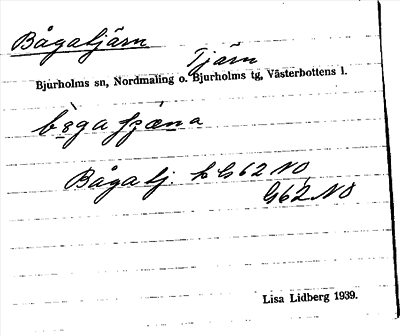 Bågatjärn
Tjärn
Bjurholms sn, Nordmaling o. Bjurholms tg, Västerbottens l.
Bågatj. G62 NO
G62 NO
Lisa Lidberg 1939.